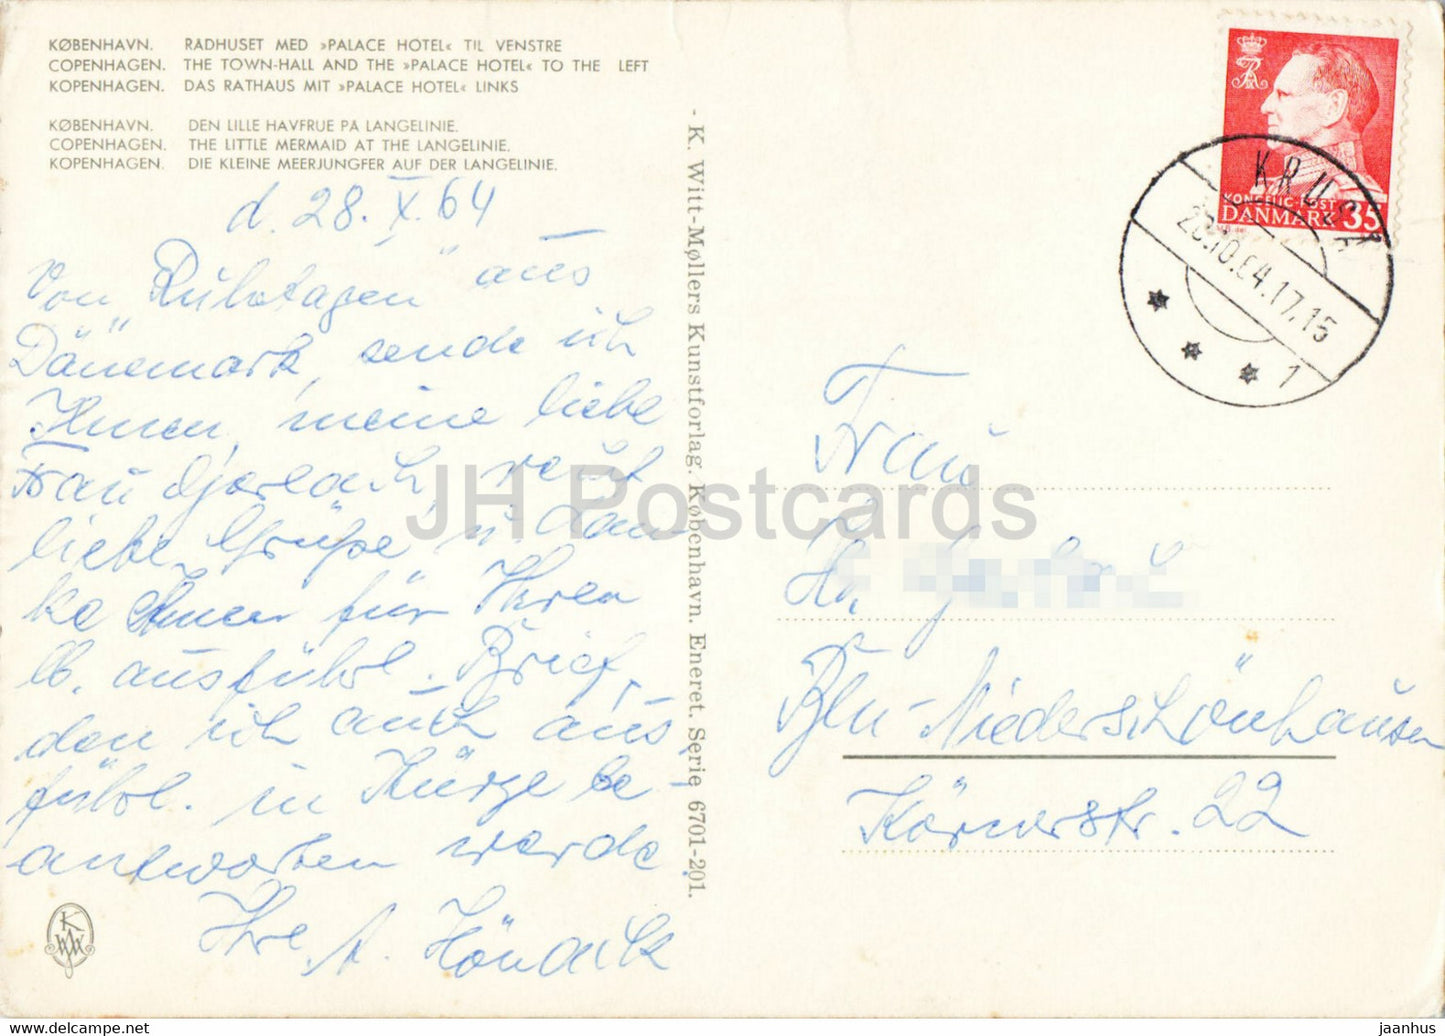 KØBENHAVN. RADHUSET MED »PALACE HOTEL« TIL VENSTRE
COPENHAGEN. THE TOWN-HALL AND THE »PALACE HOTEL« TO THE LEFT
KOPENHAGEN. DAS RATHAUS MIT »PALACE HOTEL« LINKS
KØBENHAVN. DEN LILLE HAVFRUE PA LANGELINIE.
COPENHAGEN. THE LITTLE MERMAID AT THE LANGELINIE.
KOPENHAGEN. DIE KLEINE MEERJUNGFER AUF DER LANGELINIE.
d. 28. X. 64
Von „Ruhetagen" aus
Dänemark, sende ich
Ihnen, meine liebe
Frau recht
liebe Grüße u. dan-
ke Ihnen für Ihren
lb. ausführl. Brief,
den ich auch aus
führl. in Kürze be
antworten werde
Ihre A.
- K. Witt-Møllers Kunstforlag. København. Eneret. Serie 6701-201.
KONGELIG POST
DANMARK 35
KRUSÅ
28.10.64.17.15
1
Frau
Bln-Niederschönhausen
Körnerstr. 22
KWM
JH Postcards
jaanhus — https://www.delcampe.net